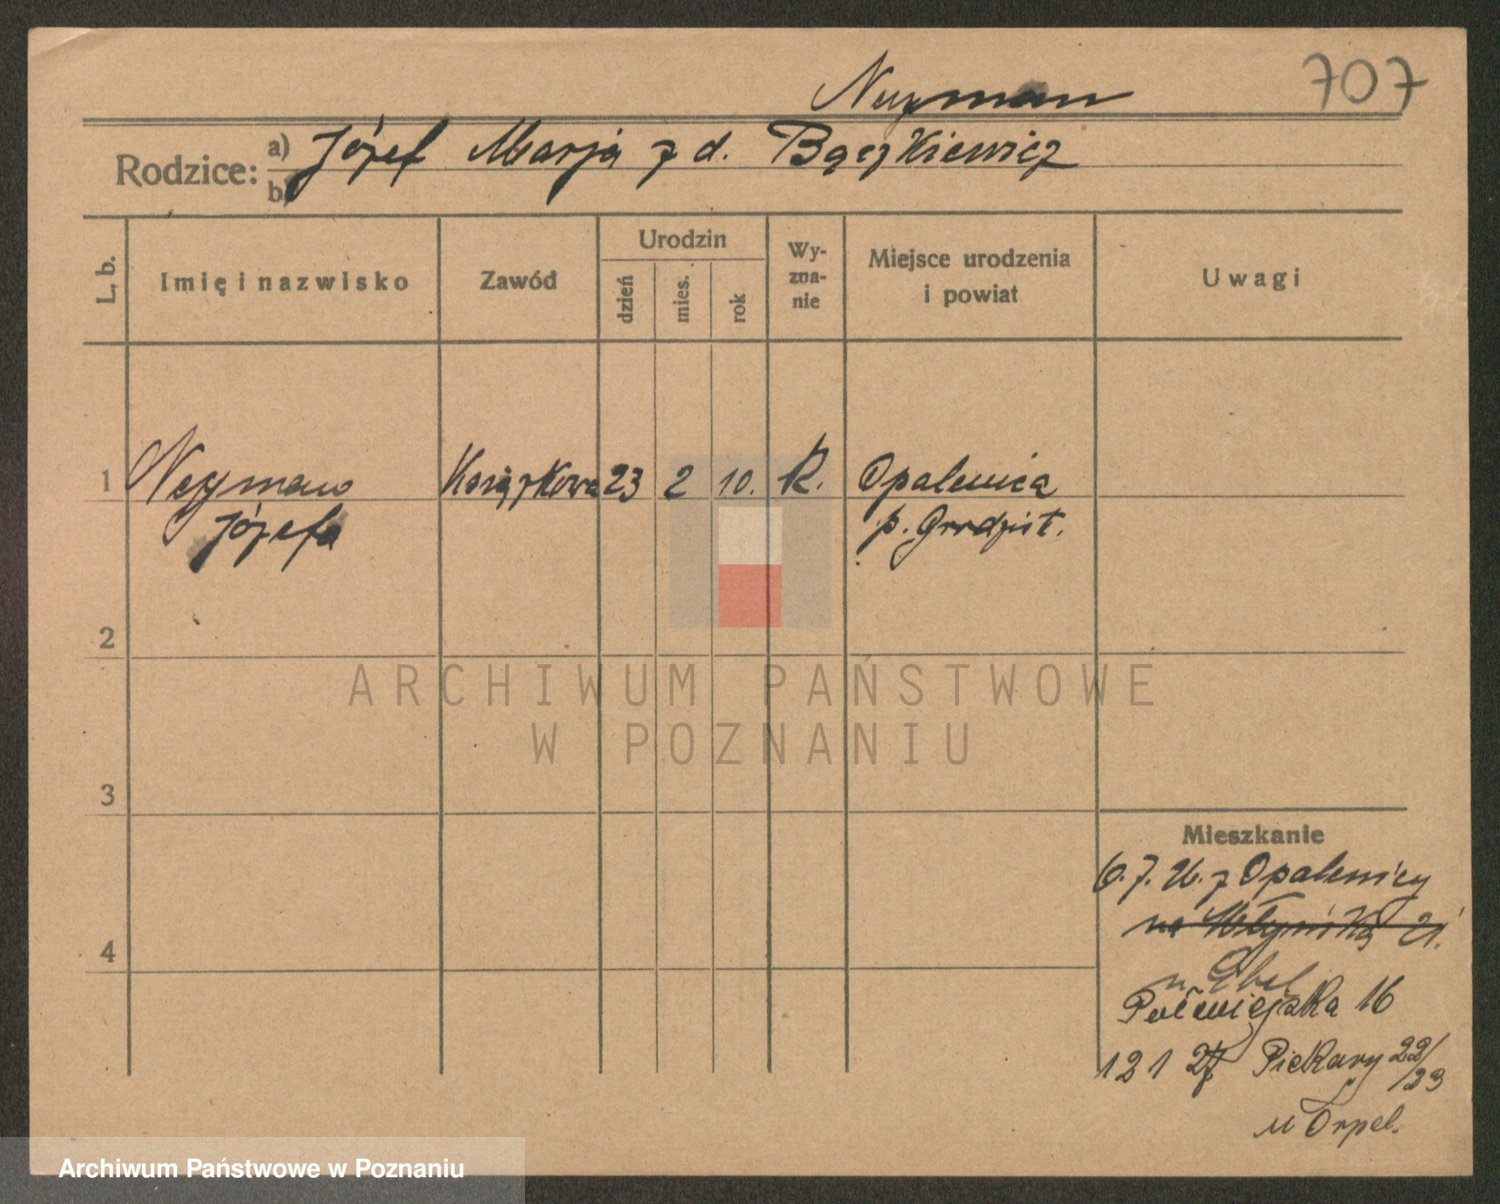 707
Neyman
Rodzice: a) Józef Marja z d. Bączkiewicz
b)
L. b.
Imię i nazwisko
Zawód
Urodzin
dzień
mies.
rok
Wy-
zna-
nie
Miejsce urodzenia
i powiat
Uwagi
1 Neyman 23 2 10. R. Opalenica
Józefa p. Grodzisk.
2
3
4
ARCHIWUM PAŃSTWOWE
W POZNANIU
Mieszkanie
z Opalenicy
na Młyńską 21.
Półwiejska 16
12 1 27 Piekary 22/23
u
Archiwum Państwowe w Poznaniu